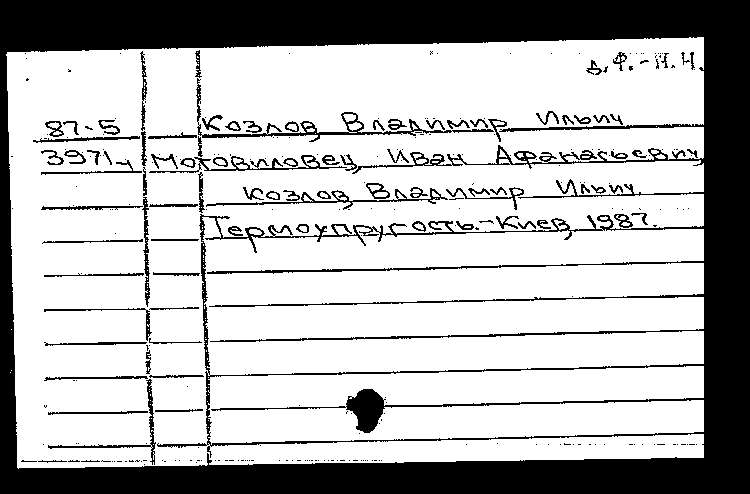 д.ф.-м.н.
87-5 Козлов Владимир Ильич
3971ч Мотовиловец Иван Афанасьевич,
Козлов Владимир Ильич
Термоупругость.-Киев, 1987.